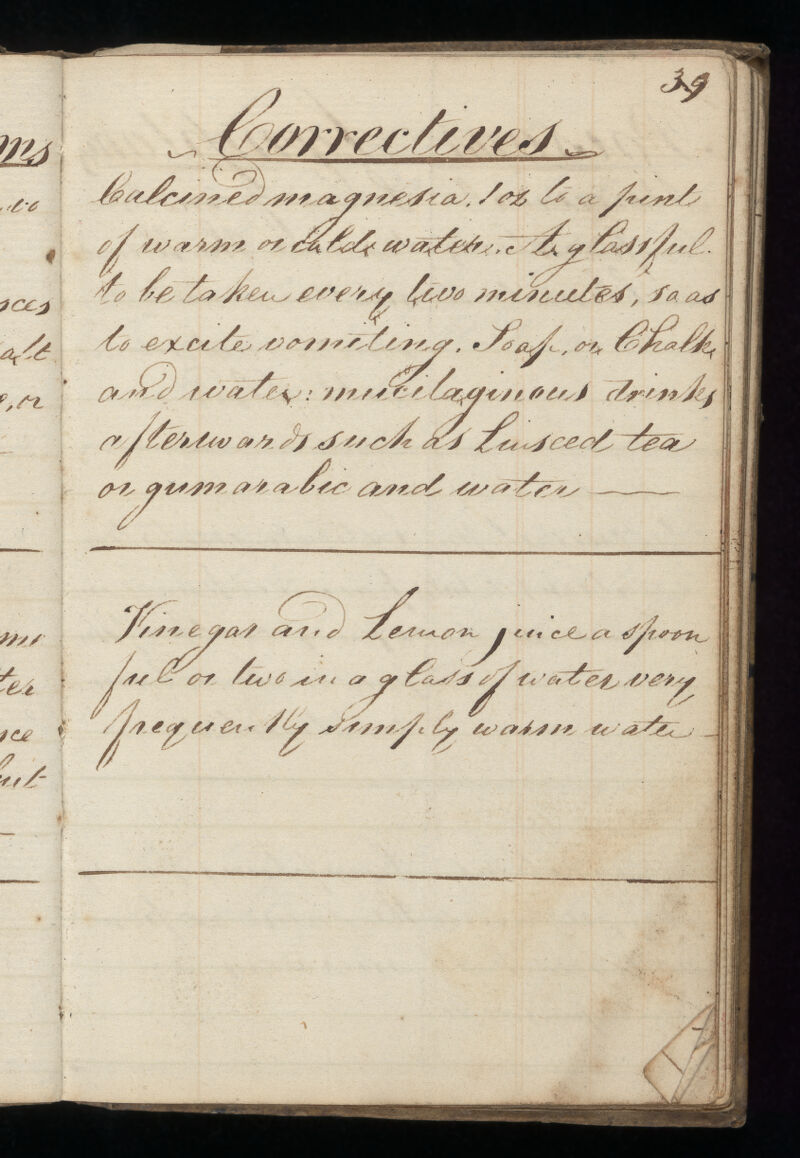 39
Correctives
Calcined magnesia. 1 oz to a pint
of warm or cold water. A glassful
to be taken every two minutes, so as
to excite vomiting. Soap, or Chalk
and water: mucilaginous drinks
afterwards such as Linseed tea
or gumarabic and water —
Vinegar and Lemon juice a spoon
ful or two in a glass of water very
frequently simply warm water —
ms
nces
alt
e, or
ter
nce
but